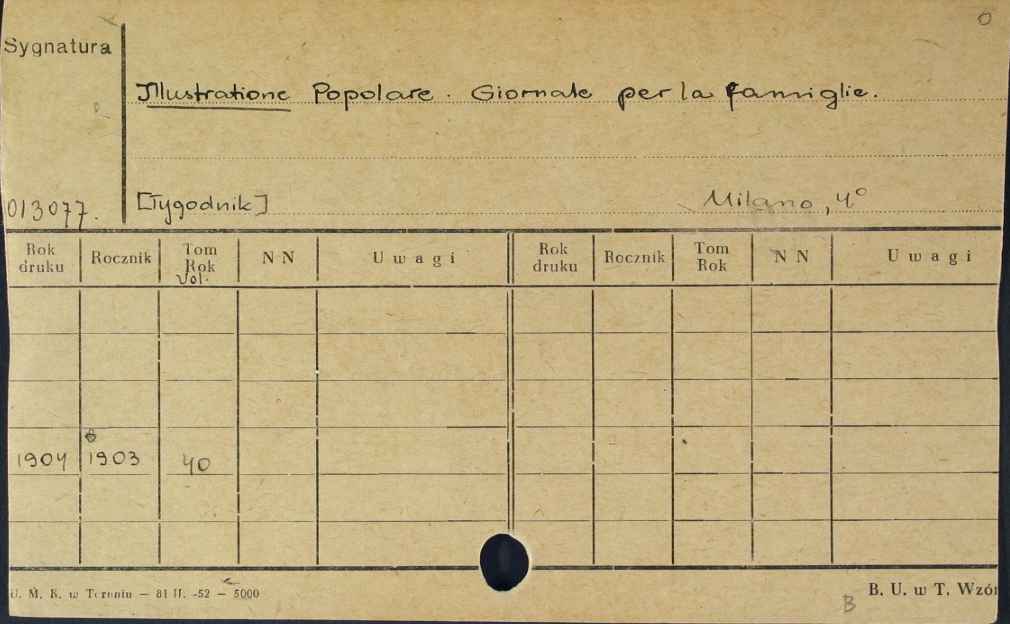 0
Sygnatura
Illustratione Popolare. Giornale per la famiglie.
013077. [Tygodnik] Milano, 4°
Rok druku Rocznik Tom Rok Vol. NN Uwagi Rok druku Rocznik Tom Rok NN Uwagi
1904 1903 40
U. M. K. w Toruniu — 81 II. -52 — 5000 B. U. w T. Wzór
B